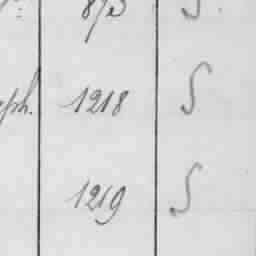 873 S.
ph. 1218 S
1219 S